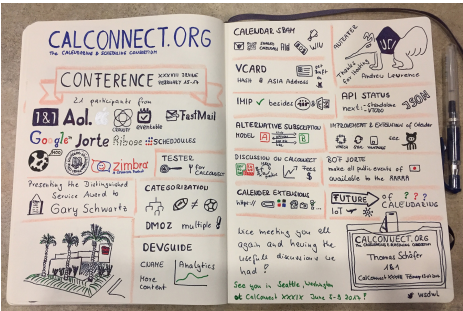 CALCONNECT.ORG
THE CALENDARING & SCHEDULING CONSORTIUM
CONFERENCE XXXVIII IRVINE
FEBRUARY 15-17
21 participants from
1&1 Aol. eventable FastMail
Google Jorte Ribose SCHEDJOULES
zimbra
Presenting the Distinguished
Service Award to
Gary Schwartz
TESTER
for
CALCONNECT
CATEGORIZATION
DMOZ multiple
DEVGUIDE
CNAME Analytics
More
content
CALENDAR SPAM
WIN
VCARD
HASH & ASIA ADDRESS
IMIP ✓ besides
ALTERNATIVE SUBSCRIPTION
MODEL A B
DISCUSSION ON CALCONNECT
Fees
CALENDER EXTENSIONS
http://
Nice meeting you all
again and having the
usefull discussions we
had!
See you in Seattle, Washington
at CalConnect XXXIX June 5-9 2017!
Thanks
for Hosting
Andrew Laurence
API STATUS
next: - standalone
VTODO
JSON
IMPROVEMENT & EXTENSION of Calendar
see
BOF JORTE
make all public events of
available to the
FUTURE of ? ? ?
CALENDARING
IoT
CALCONNECT.ORG
THE CALENDARING & SCHEDULING CONSORTIUM
Thomas Schäfer
1&1
CalConnect XXXVIII February 13-17 2017